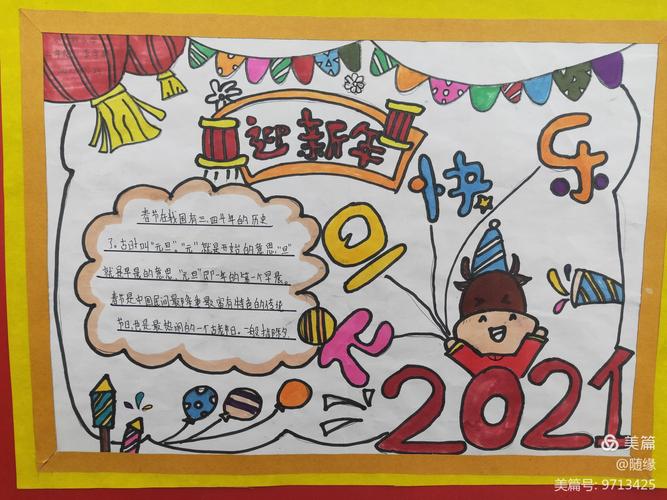 迎新年
快乐
元旦
春节在我国有三、四千年的历史
了。古时叫“元旦”。“元”就是开始的意思，“旦”
就是早晨的意思。“元旦”即一年的第一个早晨。
春节是中国民间最隆重最富有特色的传统
节日，也是最热闹的一个古老节日。一般指除夕
2021
美篇
@随缘
美篇号: 9713425